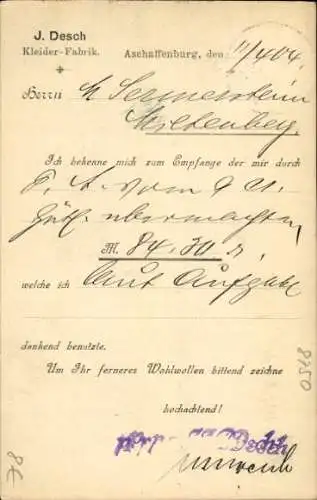 J. Desch
Kleider-Fabrik.
Aschaffenburg, den 11/4 04.
Herrn M
Miltenberg.
Ich bekenne mich zum Empfange der mir durch
gütl. übermachten
M. 84.30 d.
welche ich laut Aufgabe
dankend benutzte.
Um Ihr ferneres Wohlwollen bittend zeichne
hochachtend!
Desch
8350
8€